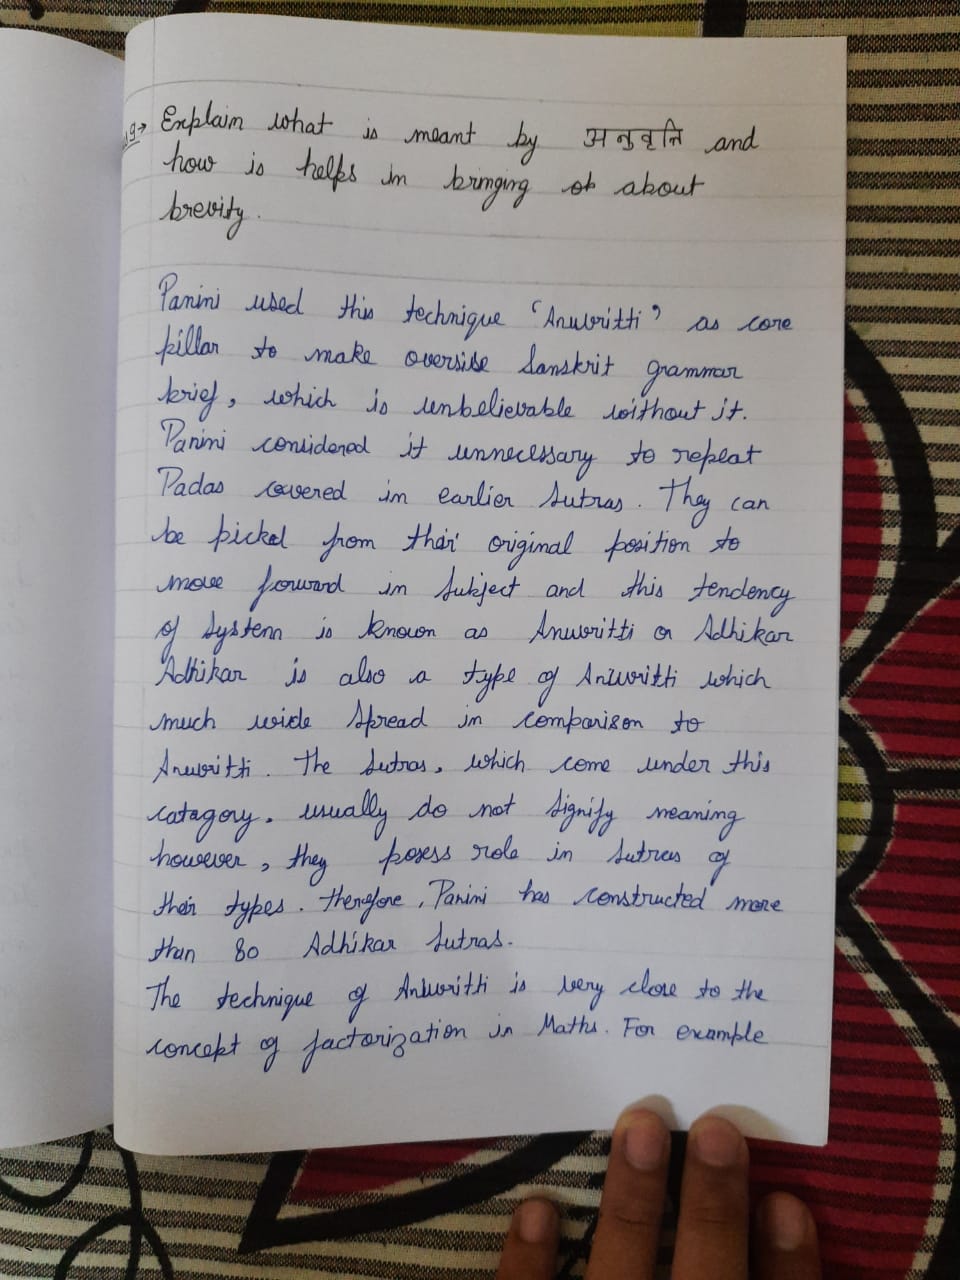 19→ Explain what is meant by अनुवृत्ति and
how is helps in bringing about
brevity.
Panini used this technique ‘Anuvritti’ as core
pillar to make overside Sanskrit grammar
brief, which is unbelievable without it.
Panini considered it unnecessary to repeat
Padas covered in earlier Sutras. They can
be picked from their original position to
move forward in subject and this tendency
of system is known as Anuvritti or Adhikar
Adhikar is also a type of Anuvritti which
much wide spread in comparison to
Anuvritti. The sutras, which come under this
catagory, usually do not signify meaning
however, they posess role in sutras of
their types. therefore, Panini has constructed more
than 80 Adhikar sutras.
The technique of Anuvritti is very close to the
concept of factorization in Maths. For example